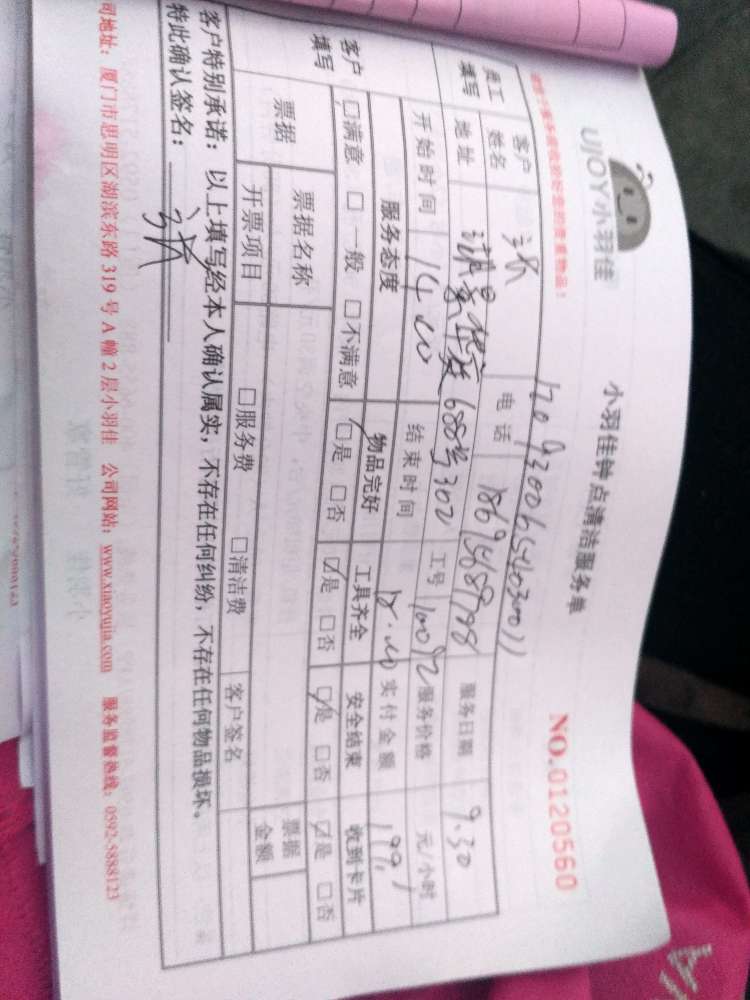 UJOY小羽佳
小羽佳钟点清洁服务单
NO.0120560
员工填写
客户姓名 张 电话 服务日期 9.30
地址 688号302 工号 服务价格 元/小时
开始时间 14.00 结束时间 18.00 实付金额 199
客户填写
服务态度 物品完好 工具齐全 安全结束 收到卡片
□满意 □一般 □不满意 □是 □否 □是 □否 □是 □否 □是 □否
票据 票据名称 票据金额
开票项目 □服务费 □清洁费 客户签名
客户特别承诺：以上填写经本人确认属实，不存在任何纠纷，不存在任何物品损坏。
特此确认签名： 张
司地址：厦门市思明区湖滨东路 319 号 A 幢 2 层小羽佳 公司网站：www.xiaoyujia.com 服务监督热线：0592-5888123